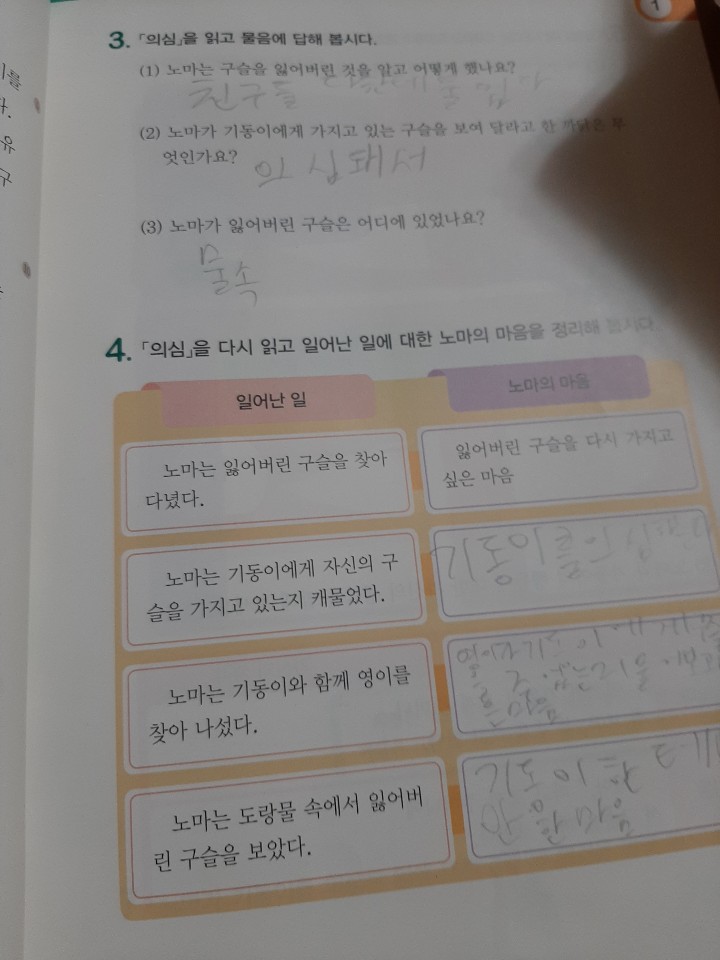 1
3. 「의심」을 읽고 물음에 답해 봅시다.
(1) 노마는 구슬을 잃어버린 것을 알고 어떻게 했나요?
친구들
(2) 노마가 기동이에게 가지고 있는 구슬을 보여 달라고 한 까닭은 무
엇인가요?
의심돼서
(3) 노마가 잃어버린 구슬은 어디에 있었나요?
물속
4. 「의심」을 다시 읽고 일어난 일에 대한 노마의 마음을 정리해 봅시다.
일어난 일
노마의 마음
노마는 잃어버린 구슬을 찾아
다녔다.
잃어버린 구슬을 다시 가지고
싶은 마음
노마는 기동이에게 자신의 구
슬을 가지고 있는지 캐물었다.
기동이를 의심
노마는 기동이와 함께 영이를
찾아 나섰다.
영이가
마음
노마는 도랑물 속에서 잃어버
린 구슬을 보았다.
마음
를
다.
유
구